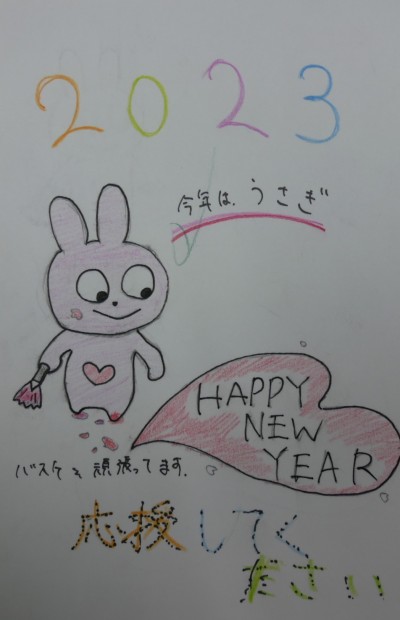 2023
今年は、うさぎ
HAPPY
NEW
YEAR
バスケを頑張ってます.
応援してく
ださい